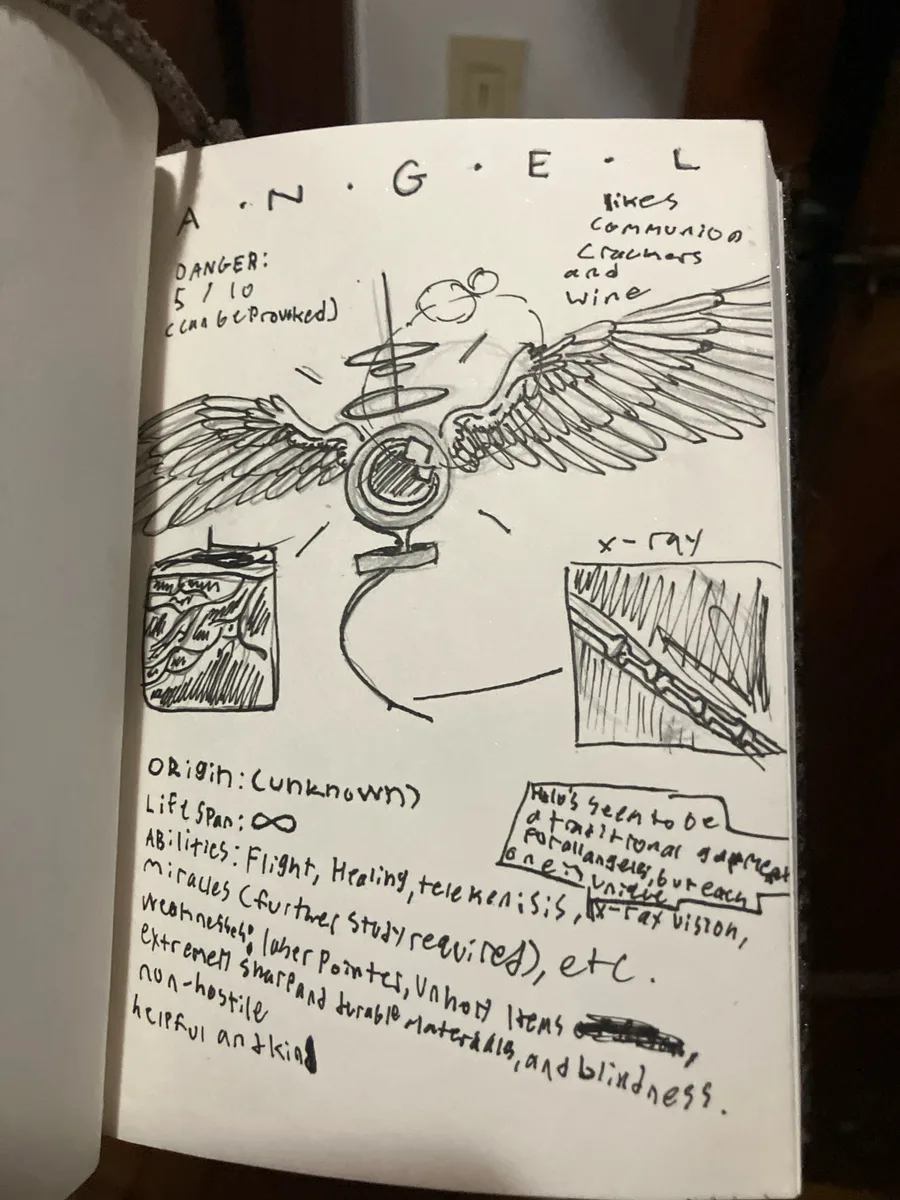 A · N · G · E · L
likes
communion
Crackers
and
wine
DANGER:
5 / 10
(Can be Provoked)
x-ray
ORigin: (unknown)
Life span: ∞
Halo's seem to be
a traditional garment
for all angels, but each
one is unique
Abilities: Flight, Healing, telekenisis, x-ray vision,
miracles (further study required), etc.
weaknesses: laser pointer, unholy items
extremely sharp and durable materials, and blindness.
non-hostile
helpful and kind